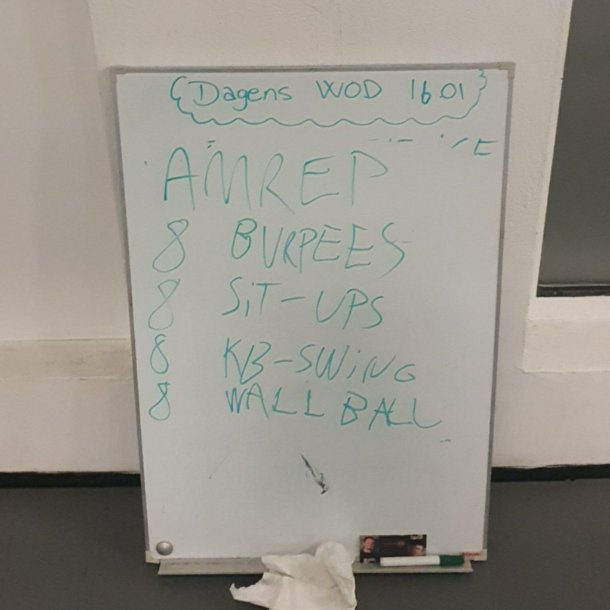 Dagens WOD 16.01
AMREP
8 BURPEES
8 SiT-UPS
8 KB-SWiNG
8 WALL BALL